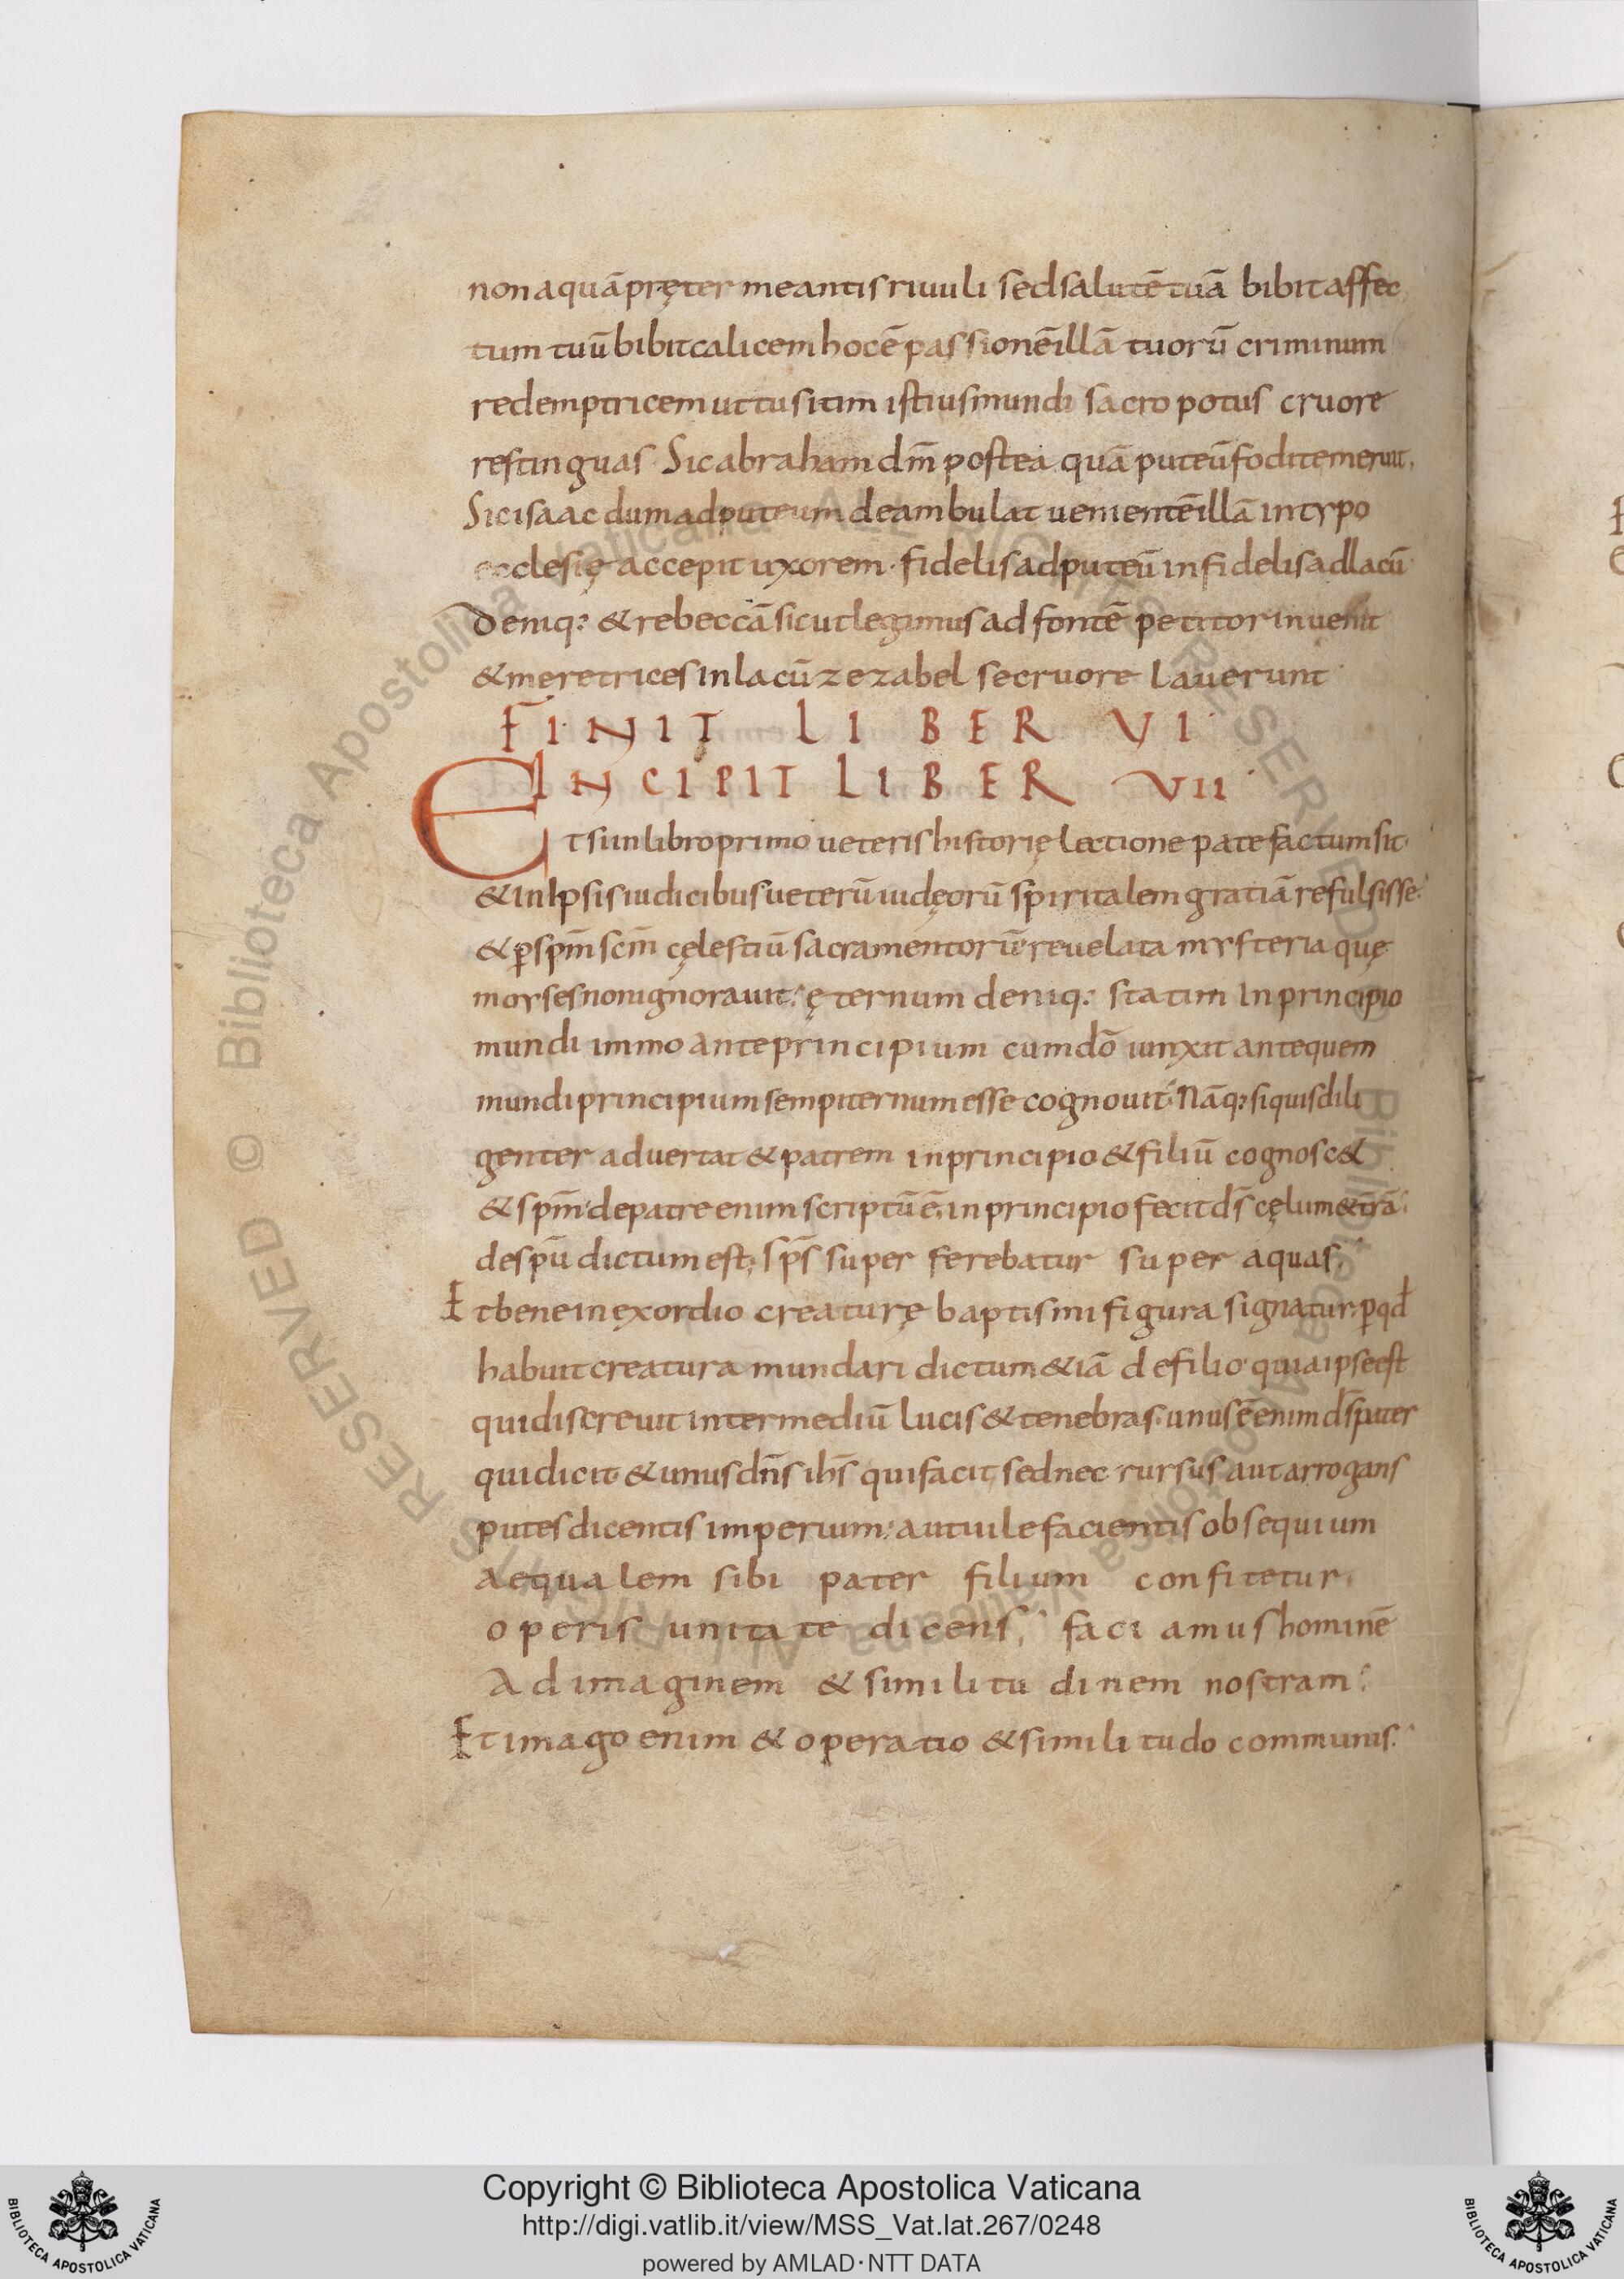 non aquā pręter meantis riuuli sed salutē tuā bibit affec
tum tuū bibit calicem hoc ē passionē illā tuorū criminum
redemptricem ut tu sitim istius mundi sacro potus cruore
restinguas. Sic abraham dm̄ postea quā puteū fodit emeruit,
Sic isaac dum ad puteum deambulat uenientē illā in typo
ecclesię accepit uxorem. fidelis ad puteū infidelis ad lacū
Deniq: & rebeccā sicut legimus ad fontē petitor inuenit
& meretrices in lacū zezabel se cruore lauerunt
FINIT LIBER VI
INCIPIT LIBER VII
Etsi in libro primo ueteris historię lectione patefactum sit
& in Ipsis iudicibus ueterū iudęorū spiritalem gratiā refulsisse.
& p̄ sp̄m sc̄m cęlestiū sacramentorū reuelata mysteria quę
moyses non ignorauit. ęternum deniq: statim In principio
mundi immo ante principium cum dō iunxit ante quem
mundi principium sempiternum esse cognouit. Nāq: si quis dili
genter aduertat & patrem in principio & filiū cognosc&
& sp̄m. de patre enim scriptū ē, in principio fecit ds̄ cęlum & trā.
de spū dictum est, sps̄ super ferebatur super aquas.
Et bene in exordio creaturę baptismi figura signatur. p̄ qd̄
habuit creatura mundari dictum & iā de filio. quia ipse est
qui discreuit inter mediū lucis & tenebras. unus ē enim ds̄ pater
qui dicit & unus dn̄s ihs̄ qui facit, sed nec rursus aut arrogans
putes dicentis imperium. aut uile facientis obsequium
aequalem sibi pater filium confitetur.
operis unitate dicens, faciamus hominē
Ad imaginem & similitudinem nostram.
Et imago enim & operatio & similitudo communis.
Biblioteca Apostolica Vaticana ALL RIGHTS RESERVED
Biblioteca Apostolica Vaticana ALL RIGHTS RESERVED ©
Copyright © Biblioteca Apostolica Vaticana
http://digi.vatlib.it/view/MSS_Vat.lat.267/0248
powered by AMLAD·NTT DATA
BIBLIOTECA APOSTOLICA VATICANA
BIBLIOTECA APOSTOLICA VATICANA